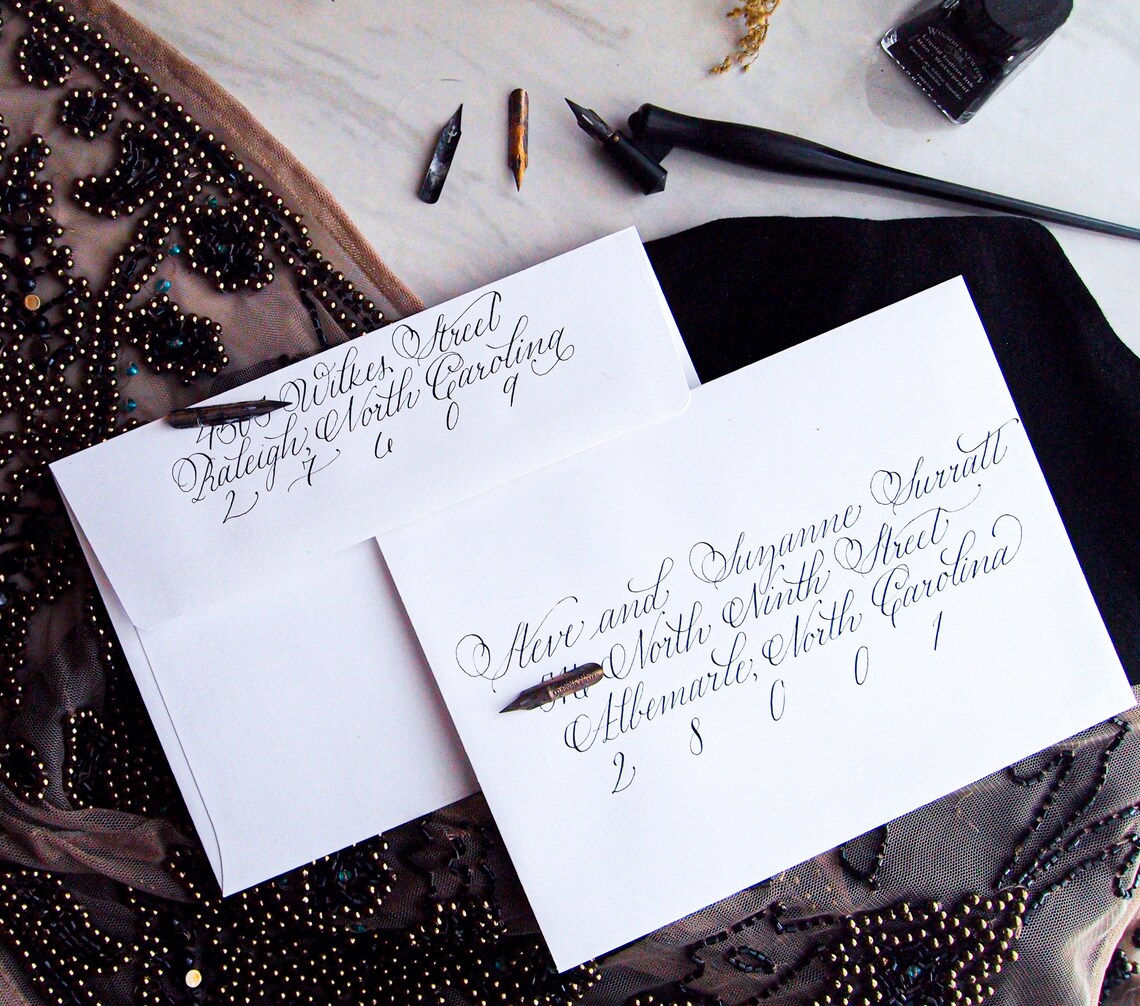 Wilkes Street
Raleigh, North Carolina
2 7 6 0 9
Steve and Suzanne Surratt
North Ninth Street
Albemarle, North Carolina
2 8 0 0 1